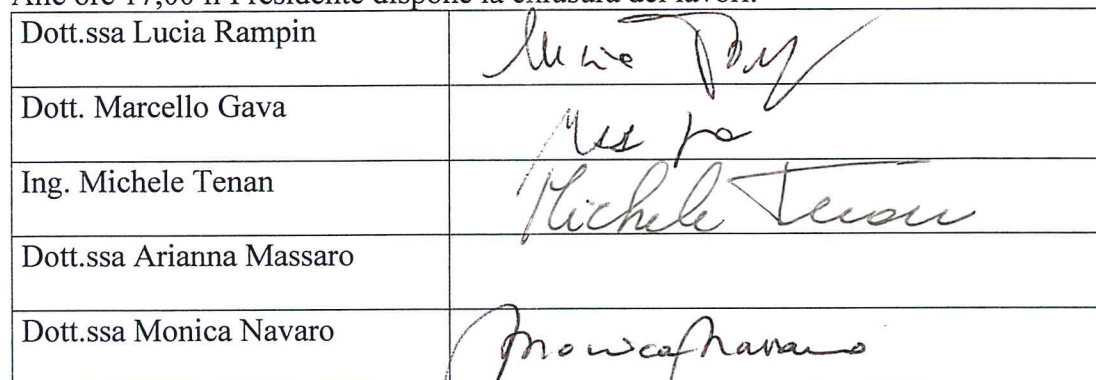 Alle ore 17,00 il Presidente dispone la chiusura dei lavori.
Dott.ssa Lucia Rampin
Dott. Marcello Gava
Ing. Michele Tenan
Michele Tenan
Dott.ssa Arianna Massaro
Dott.ssa Monica Navaro
Monica Navaro